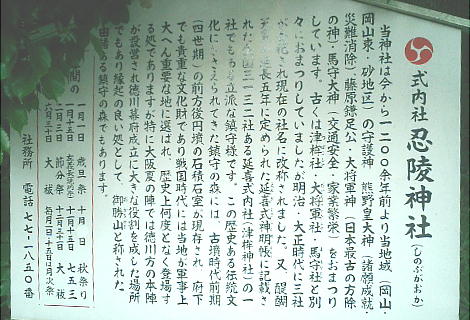 式内社 忍陵神社
(しのぶがおか)
当神社は今から一二〇〇余年前より当地域(岡山・
岡山東・砂地区)の守護神 熊野皇大神(諸願成就・
災難消除)藤原鎌足公・大将軍神(日本最古の方除
の神・馬守大神(交通安全 家業繁栄)をおまつり
しています。古くは津桙社・大将軍社・馬守社と別
々におまつりしていましたが明治・大正時代に三社
が合祀され現在の社名に改称されました。又、醍醐
天皇 延長五年に定められた延喜式神明帳に記載さ
れた全国三一三二社ある延喜式内社(津桙神社)の一
社でもある立派な鎮守様です。この歴史ある伝統文
化にささえられてきた鎮守の森には、古墳時代前期
(四世期)の前方後円墳の石積石室が現存され 府下
でも貴重な文化財であり戦国時代には当地が軍事上
大へん重要な地に選ばれ、歴史上何度となく登場す
る処でありますが特に大坂夏の陣では徳川方の本陣
が設営され徳川幕府成立に大きな役割を成した場所
でもあり縁起の良い処として、御勝山と称された
由緒ある鎮守の森でもあります。
一月一日 歳旦祭
二月三日 節分祭
六月三十日 大祓
十月 日 秋祭り
十一月十五日 七五三
十二月三十一日 大祓
毎月一日・十五日は月次祭
社務所 電話七七-一八五〇番